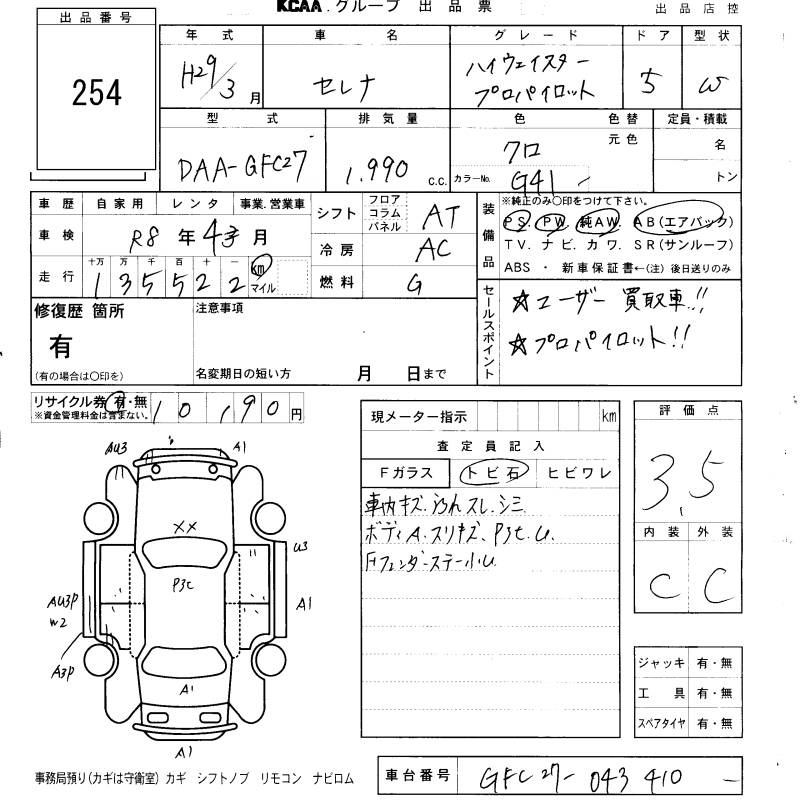 KCAA. グループ 出品票
出品店控
出品番号
254
年式 車名 グレード ドア 型状
H29/3月 セレナ ハイウェイスター プロパイロット 5 W
型式 排気量 色 色替 定員・積載
元色 名
DAA-GFC27 1,990 C.C. クロ カラーNo. G41 トン
車歴 自家用 レンタ 事業.営業車
車検 R8年4月
走行 十万 万 千 百 十 一 km マイル
135522
シフト フロア コラム パネル AT
冷房 AC
燃料 G
装備品
※純正のみ〇印をつけて下さい。
PS. PW. 純AW. AB(エアバック)
TV. ナビ. カワ. SR(サンルーフ)
ABS ・ 新車保証書←(注)後日送りのみ
セールスポイント
☆ユーザー買取車!!
☆プロパイロット!!
修復歴 箇所
有
(有の場合は〇印を)
注意事項
名変期日の短い方 月 日まで
リサイクル券 有・無
※資金管理料金は含まない。
10,190円
現メーター指示 km
査定員記入
Fガラス トビ石 ヒビワレ
車内キズ.汚れスレ.シミ
ボディA.スリキズ.P3t.U.
Fフェンダーステー小U
評価点
3.5
内装 外装
C C
ジャッキ 有・無
工具 有・無
スペアタイヤ 有・無
AU3 A1
XX
U3
P3t
AU3P
W2
A1
A3P
A1
A1
事務局預り(カギは守衛室) カギ シフトノブ リモコン ナビロム
車台番号 GFC27-043410